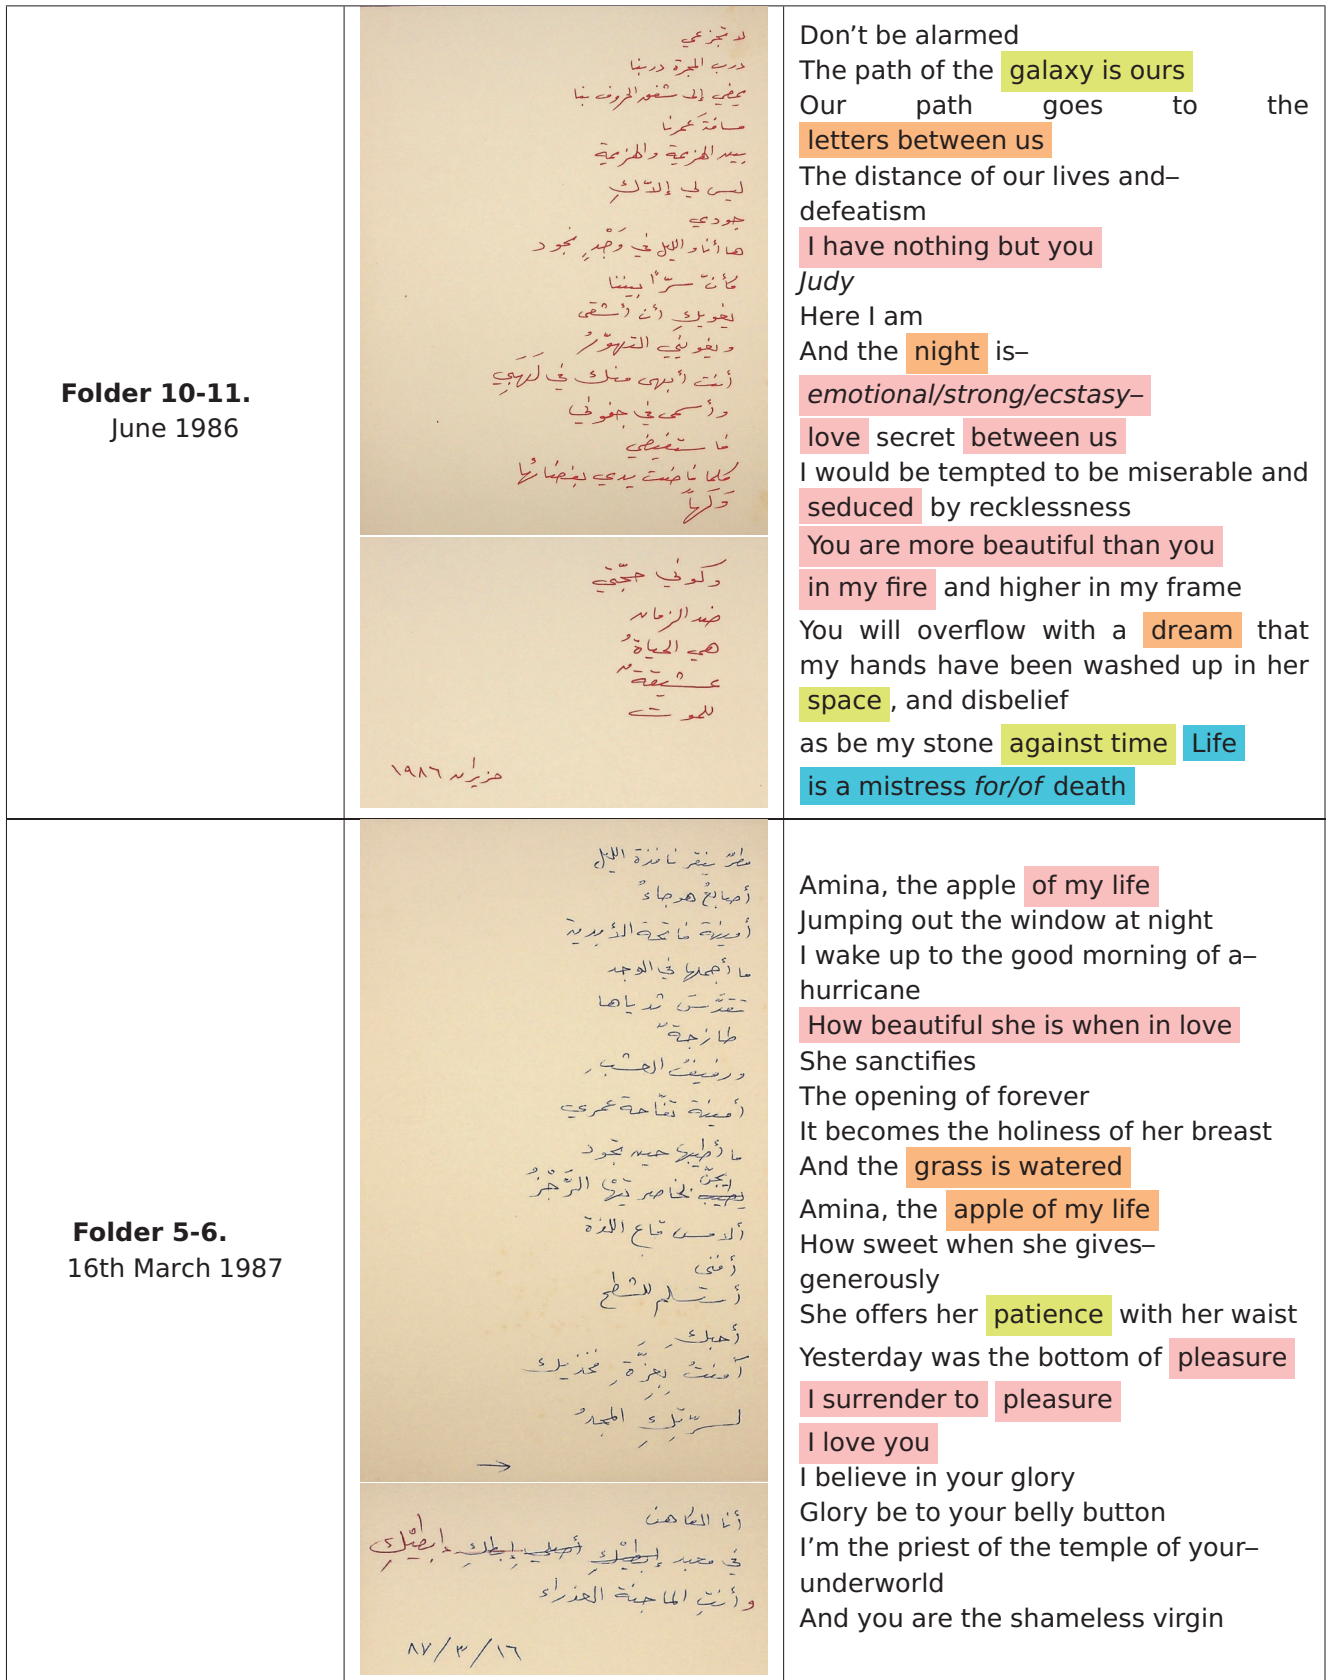 Folder 10-11.
June 1986
لا تجزعي
درب المجرة دربنا
يمضي إلى شغف الحروف بنا
مسافة عمرنا
بيد الهزيمة والهزيمة
ليس لي إلاّكِ
جودي
ها أنا والليل في وَجْدٍ نجود
كأنّ سرّاً بيننا
يغويكِ أن أشقى
ويغويني التهوّرُ
أنت أبهى منك في لَهَبي
وأسمى في جفوني
فاستفيضي
كلما فاضت يدي بفضائها
وَلَهاً
وكوني حجّتي
ضد الزمان
هي الحياةُ
عشيقةٌ
للموت
حزيران ١٩٨٦
Don’t be alarmed
The path of the galaxy is ours
Our path goes to the
letters between us
The distance of our lives and–
defeatism
I have nothing but you
Judy
Here I am
And the night is–
emotional/strong/ecstasy–
love secret between us
I would be tempted to be miserable and
seduced by recklessness
You are more beautiful than you
in my fire and higher in my frame
You will overflow with a dream that
my hands have been washed up in her
space, and disbelief
as be my stone against time Life
is a mistress for/of death
Folder 5-6.
16th March 1987
مطرٌ ينقر نافذة الليل
أصابعُ هوجاءُ
أمينة فاتحة الأبدية
ما أجملها في الوجد
تقدَّسَ ثدياها
طازجةٌ
ورفيفُ العشبِ
أمينة تفّاحة عمري
ما أطيبها حين تجود
يجنّ لخاصرتها الرَّجْزُ
ألامس قاع اللذة
أفنى
أستسلم للشطح
أحبكِ
آمنتُ بِعِزَّةِ فخذيك
لسرّتِكِ المجدُ
→
أنا الكاهن
في معبد إبطيْكِ أصلي إبطكِ إبطيْكِ
وأنتِ الماجنة العذراء
١٦/٣/٨٧
Amina, the apple of my life
Jumping out the window at night
I wake up to the good morning of a–
hurricane
How beautiful she is when in love
She sanctifies
The opening of forever
It becomes the holiness of her breast
And the grass is watered
Amina, the apple of my life
How sweet when she gives–
generously
She offers her patience with her waist
Yesterday was the bottom of pleasure
I surrender to pleasure
I love you
I believe in your glory
Glory be to your belly button
I’m the priest of the temple of your–
underworld
And you are the shameless virgin